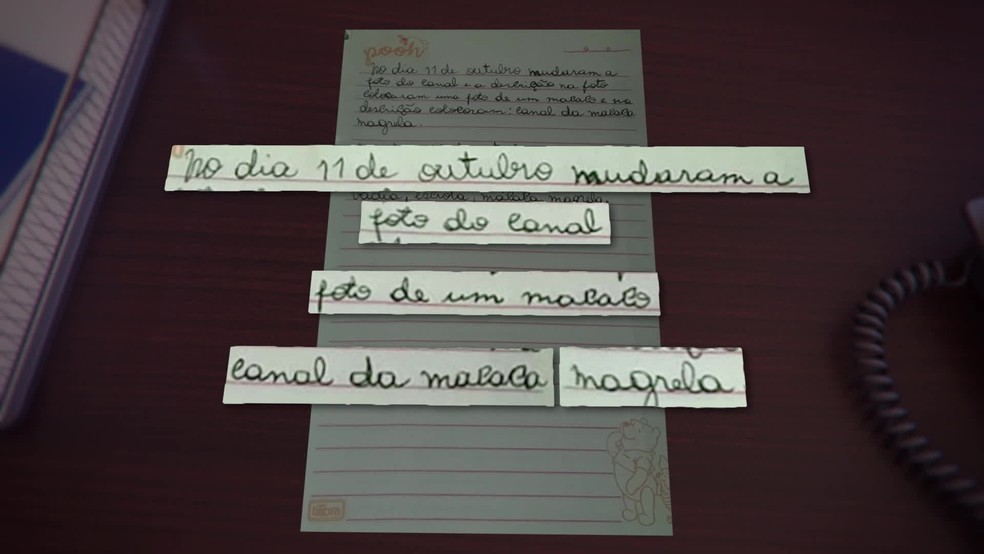 pooh
No dia 11 de outubro mudaram a
foto do canal e a descrição na foto
colocaram uma foto de um macaco e na
descrição colocaram: canal da macaca
magrela.
No dia 11 de outubro mudaram a
macaca magrela,
foto do canal
foto de um macaco
canal da macaca magrela.